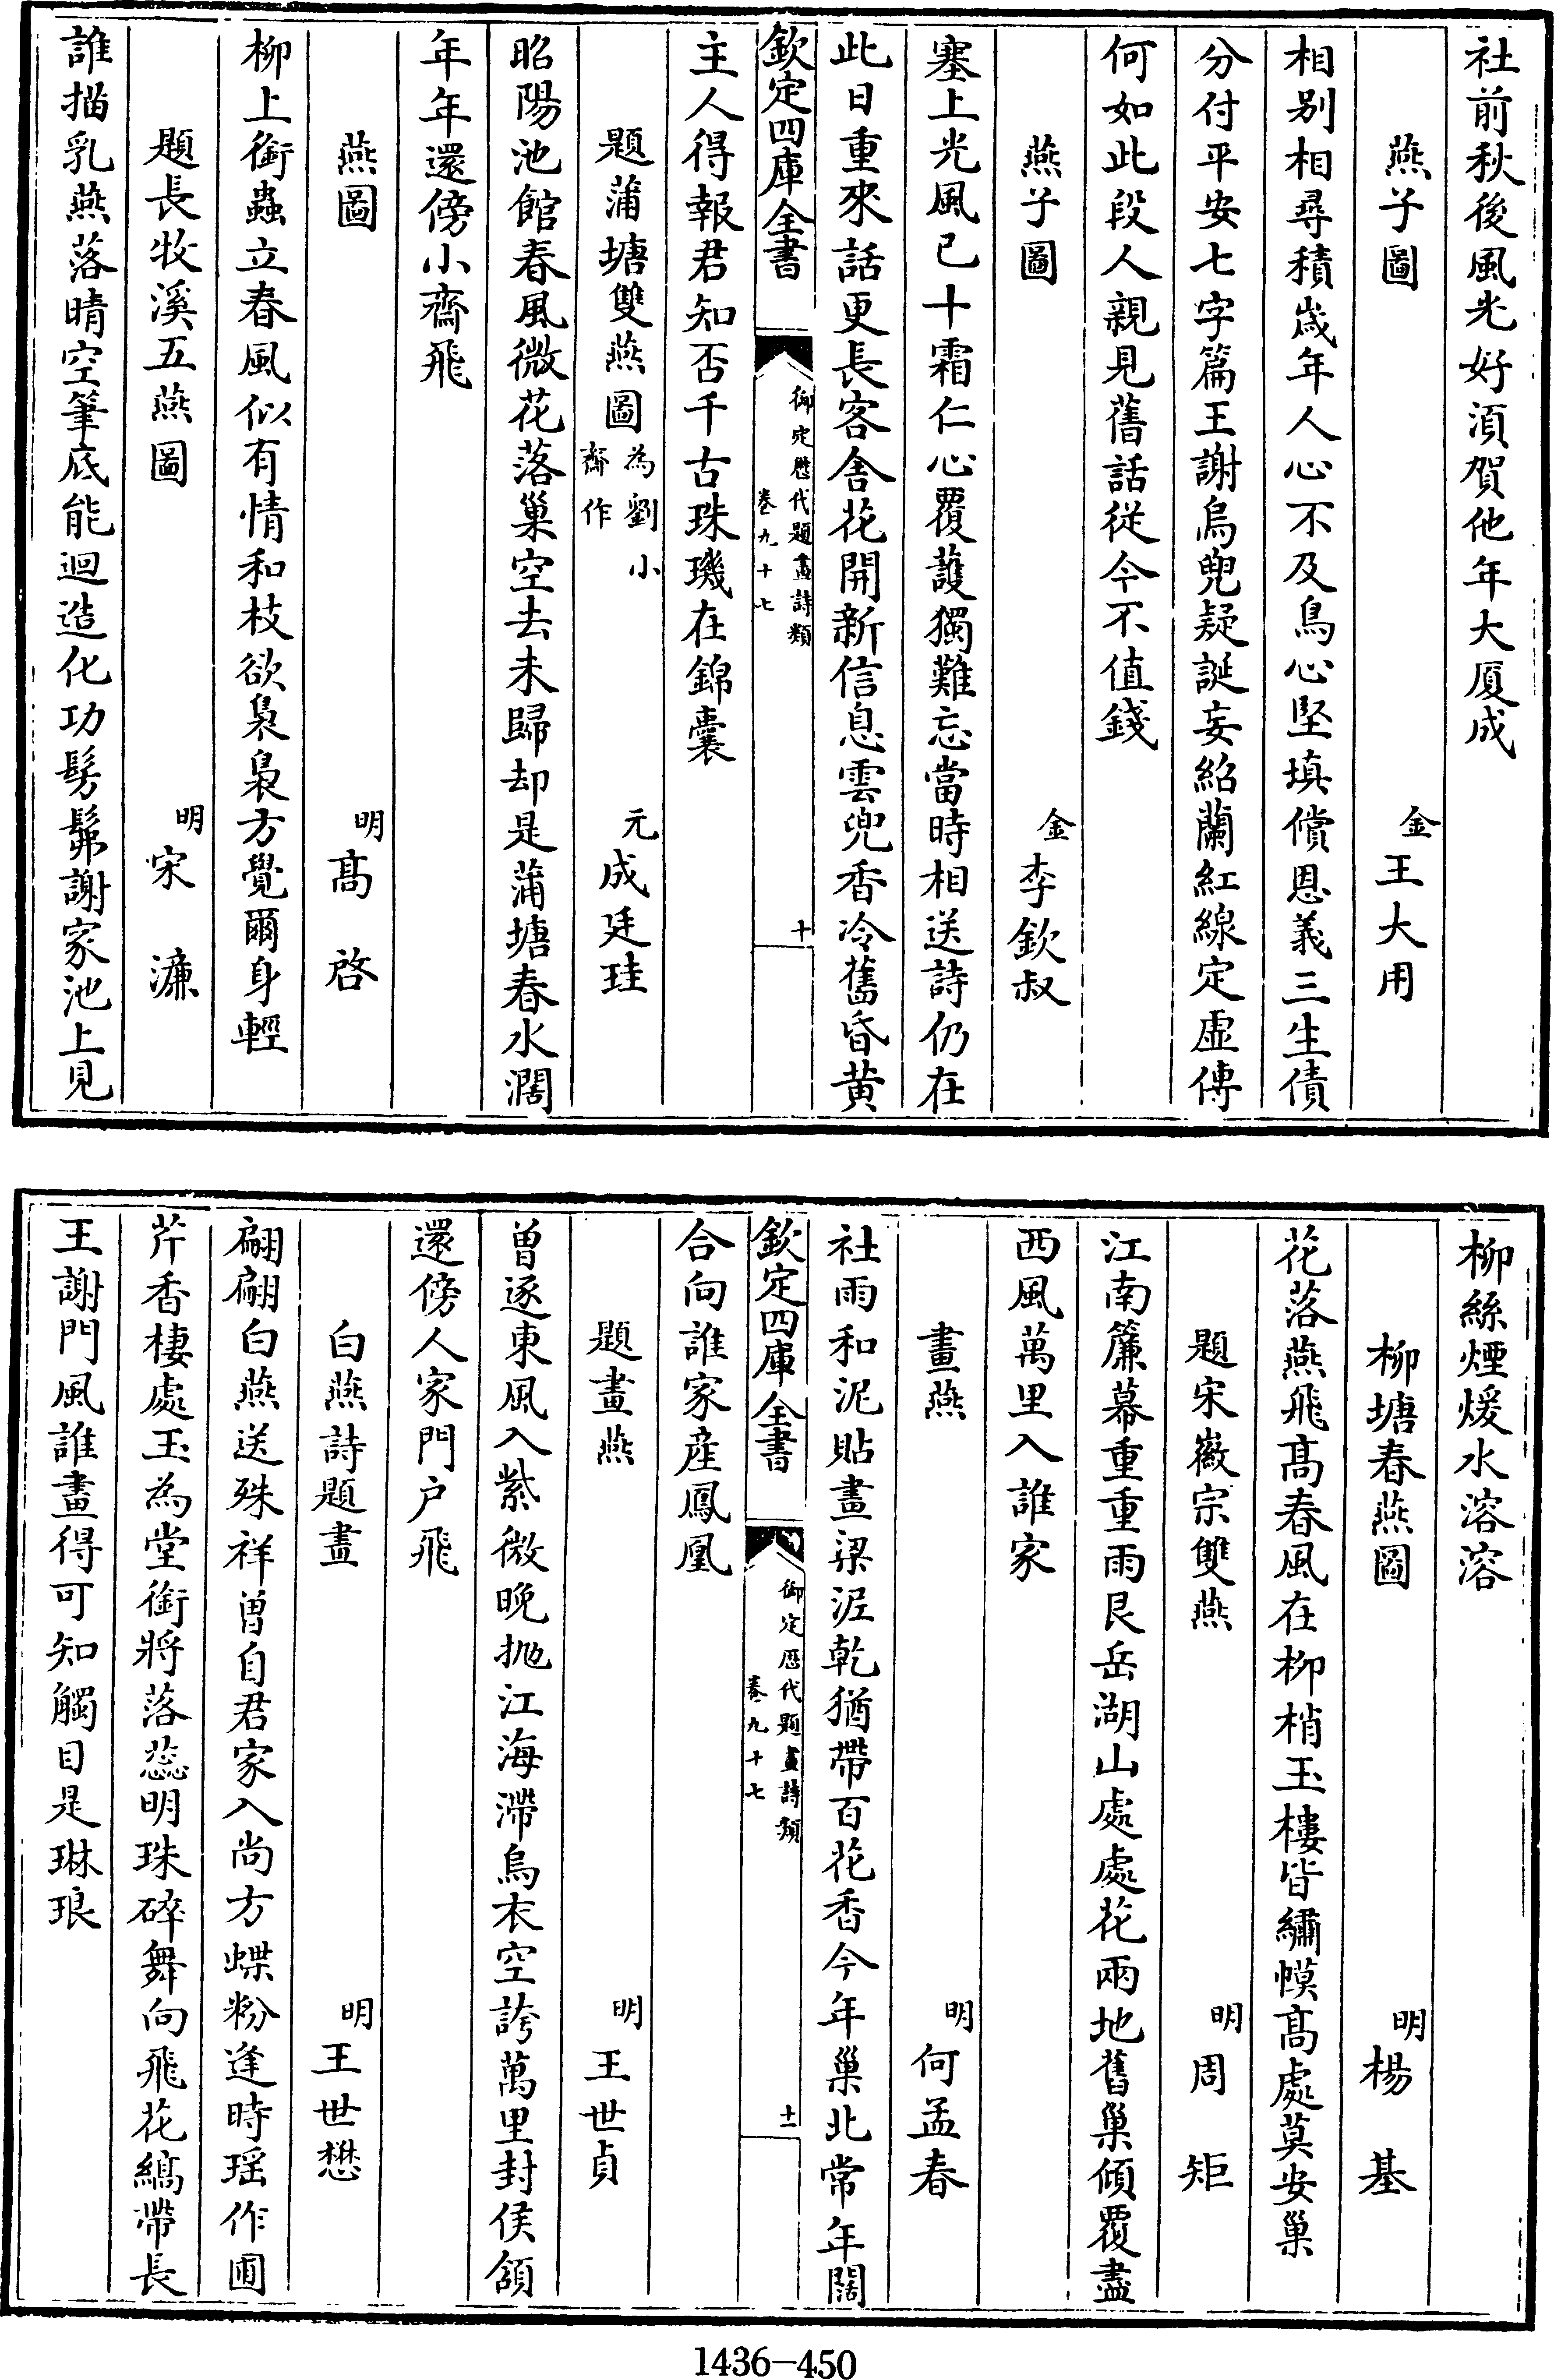 社前秋後風光好湏賀他年大厦成
燕子圖 金王大用
相别相尋積歲年人心不及鳥心堅填償恩義三生債
分付平安七字篇王謝烏兜疑誕妄紹蘭紅線定虛傳
何如此段人親見舊話從今不值錢
燕子圖 金李欽叔
塞上光風已十霜仁心覆護獨難忘當時相送詩仍在
此日重來話更長客舍花開新信息雲兜香冷舊昏黄
欽定四庫全書 御定歴代題畫詩類 卷九十七 十
主人得報君知否千古珠璣在錦囊
題蒲塘雙燕圖為劉小齋作 元成廷珪
昭陽池館春風微花落巢空去未歸却是蒲塘春水濶
年年還傍小齋飛
燕圖 明髙啓
柳上銜蟲立春風似有情和枝欲裊裊方覺爾身輕
題長牧溪五燕圖 明宋濂
誰描乳燕落晴空筆底能迴造化功髣髴謝家池上見
柳絲煙煖水溶溶
柳塘春燕圖 明楊基
花落燕飛髙春風在柳梢玉樓皆繡幙髙處莫安巢
題宋徽宗雙燕 明周矩
江南簾幕重重雨艮岳湖山處處花兩地舊巢傾覆盡
西風萬里入誰家
畫燕 明何孟春
社雨和泥貼畫梁泥乾猶帶百花香今年巢北常年闊
欽定四庫全書 御定歷代題畫詩類 卷九十七 十一
合向誰家産鳳凰
題畫燕 明王世貞
曽逐東風入紫微晚抛江海滯烏衣空誇萬里封侯頷
還傍人家門户飛
白燕詩題畫 明王世懋
翩翩白燕送殊祥曽自君家入尚方蝶粉逢時瑶作圃
芹香棲處玉為堂銜將落蕊明珠碎舞向飛花縞帶長
王謝門風誰畫得可知觸目是琳琅
1436-450